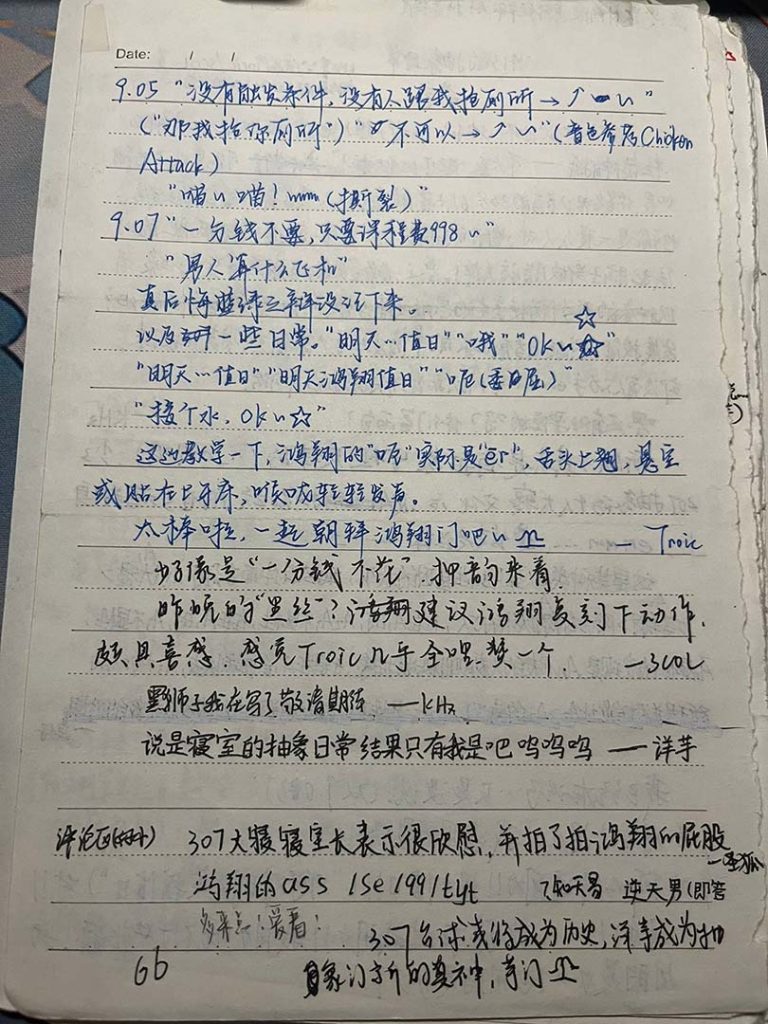 Date: / /
9.05 "没有触发条件,没有人跟我抢厕所→↗ ~"
("那我抢你厕所") "不可以→↗~"(音色参考Chicken
Attack)
"喵~喵!mm(撕裂)"
9.07 "一分钱不要,只要课程费998~"
"男人算什么飞机"
真后悔蓝绿之辩没记下来。
以及一些日常。"明天…值日""哦""Ok~☆"
"明天…值日""明天鸿翔值日""呃(委屈)"
"接个水,Ok~☆"
这边教学一下,鸿翔的"呃"实际是"er",舌头上翘,悬空
或贴在上牙床,喉咙轻轻发声。
太棒啦,一起朝拜鸿翔门吧~ — Troic
好像是"一分钱不花".押韵来着.
昨晚的"黑丝"?建议鸿翔复刻下动作.
颇具喜感.感觉Troic几乎全嘿.赞一个. —3COL
我在写了敬请期待 —kHz
说是寝室的抽象日常结果只有我是吧呜呜呜 ——洋芋
评论区 307大寝寝室长表示很欣慰,并拍了拍鸿翔的屁股
鸿翔的ass /se/99/tyt 逆天男(即答
多来点!爱看!
307台球或将成为历史,洋芋成为抽
象门新的真神,芋门
66